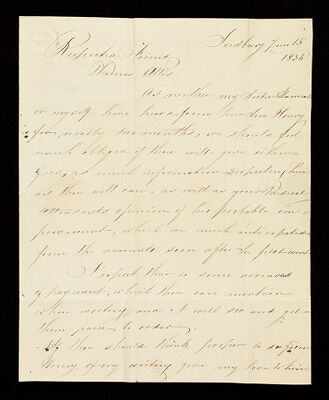 Sudbury 7 mo 15
1836
Respected Friend
Thomas Allis
As neither my Sister Hannah
or myself have heard from her Son Henry
for nearly two months, we should feel
much obliged if thou will give either
of us, as much information respecting him
as thou well can, as well as your Medical
attendants opinion of his probable im-
provement, which we much anticipated
from the accounts soon after he first went.
I expect there is some arrears
of payment, which thou can mention
when writing and I will see and get
them paid to order.
If thou should think proper to inform
Henry of my writing give my love to him